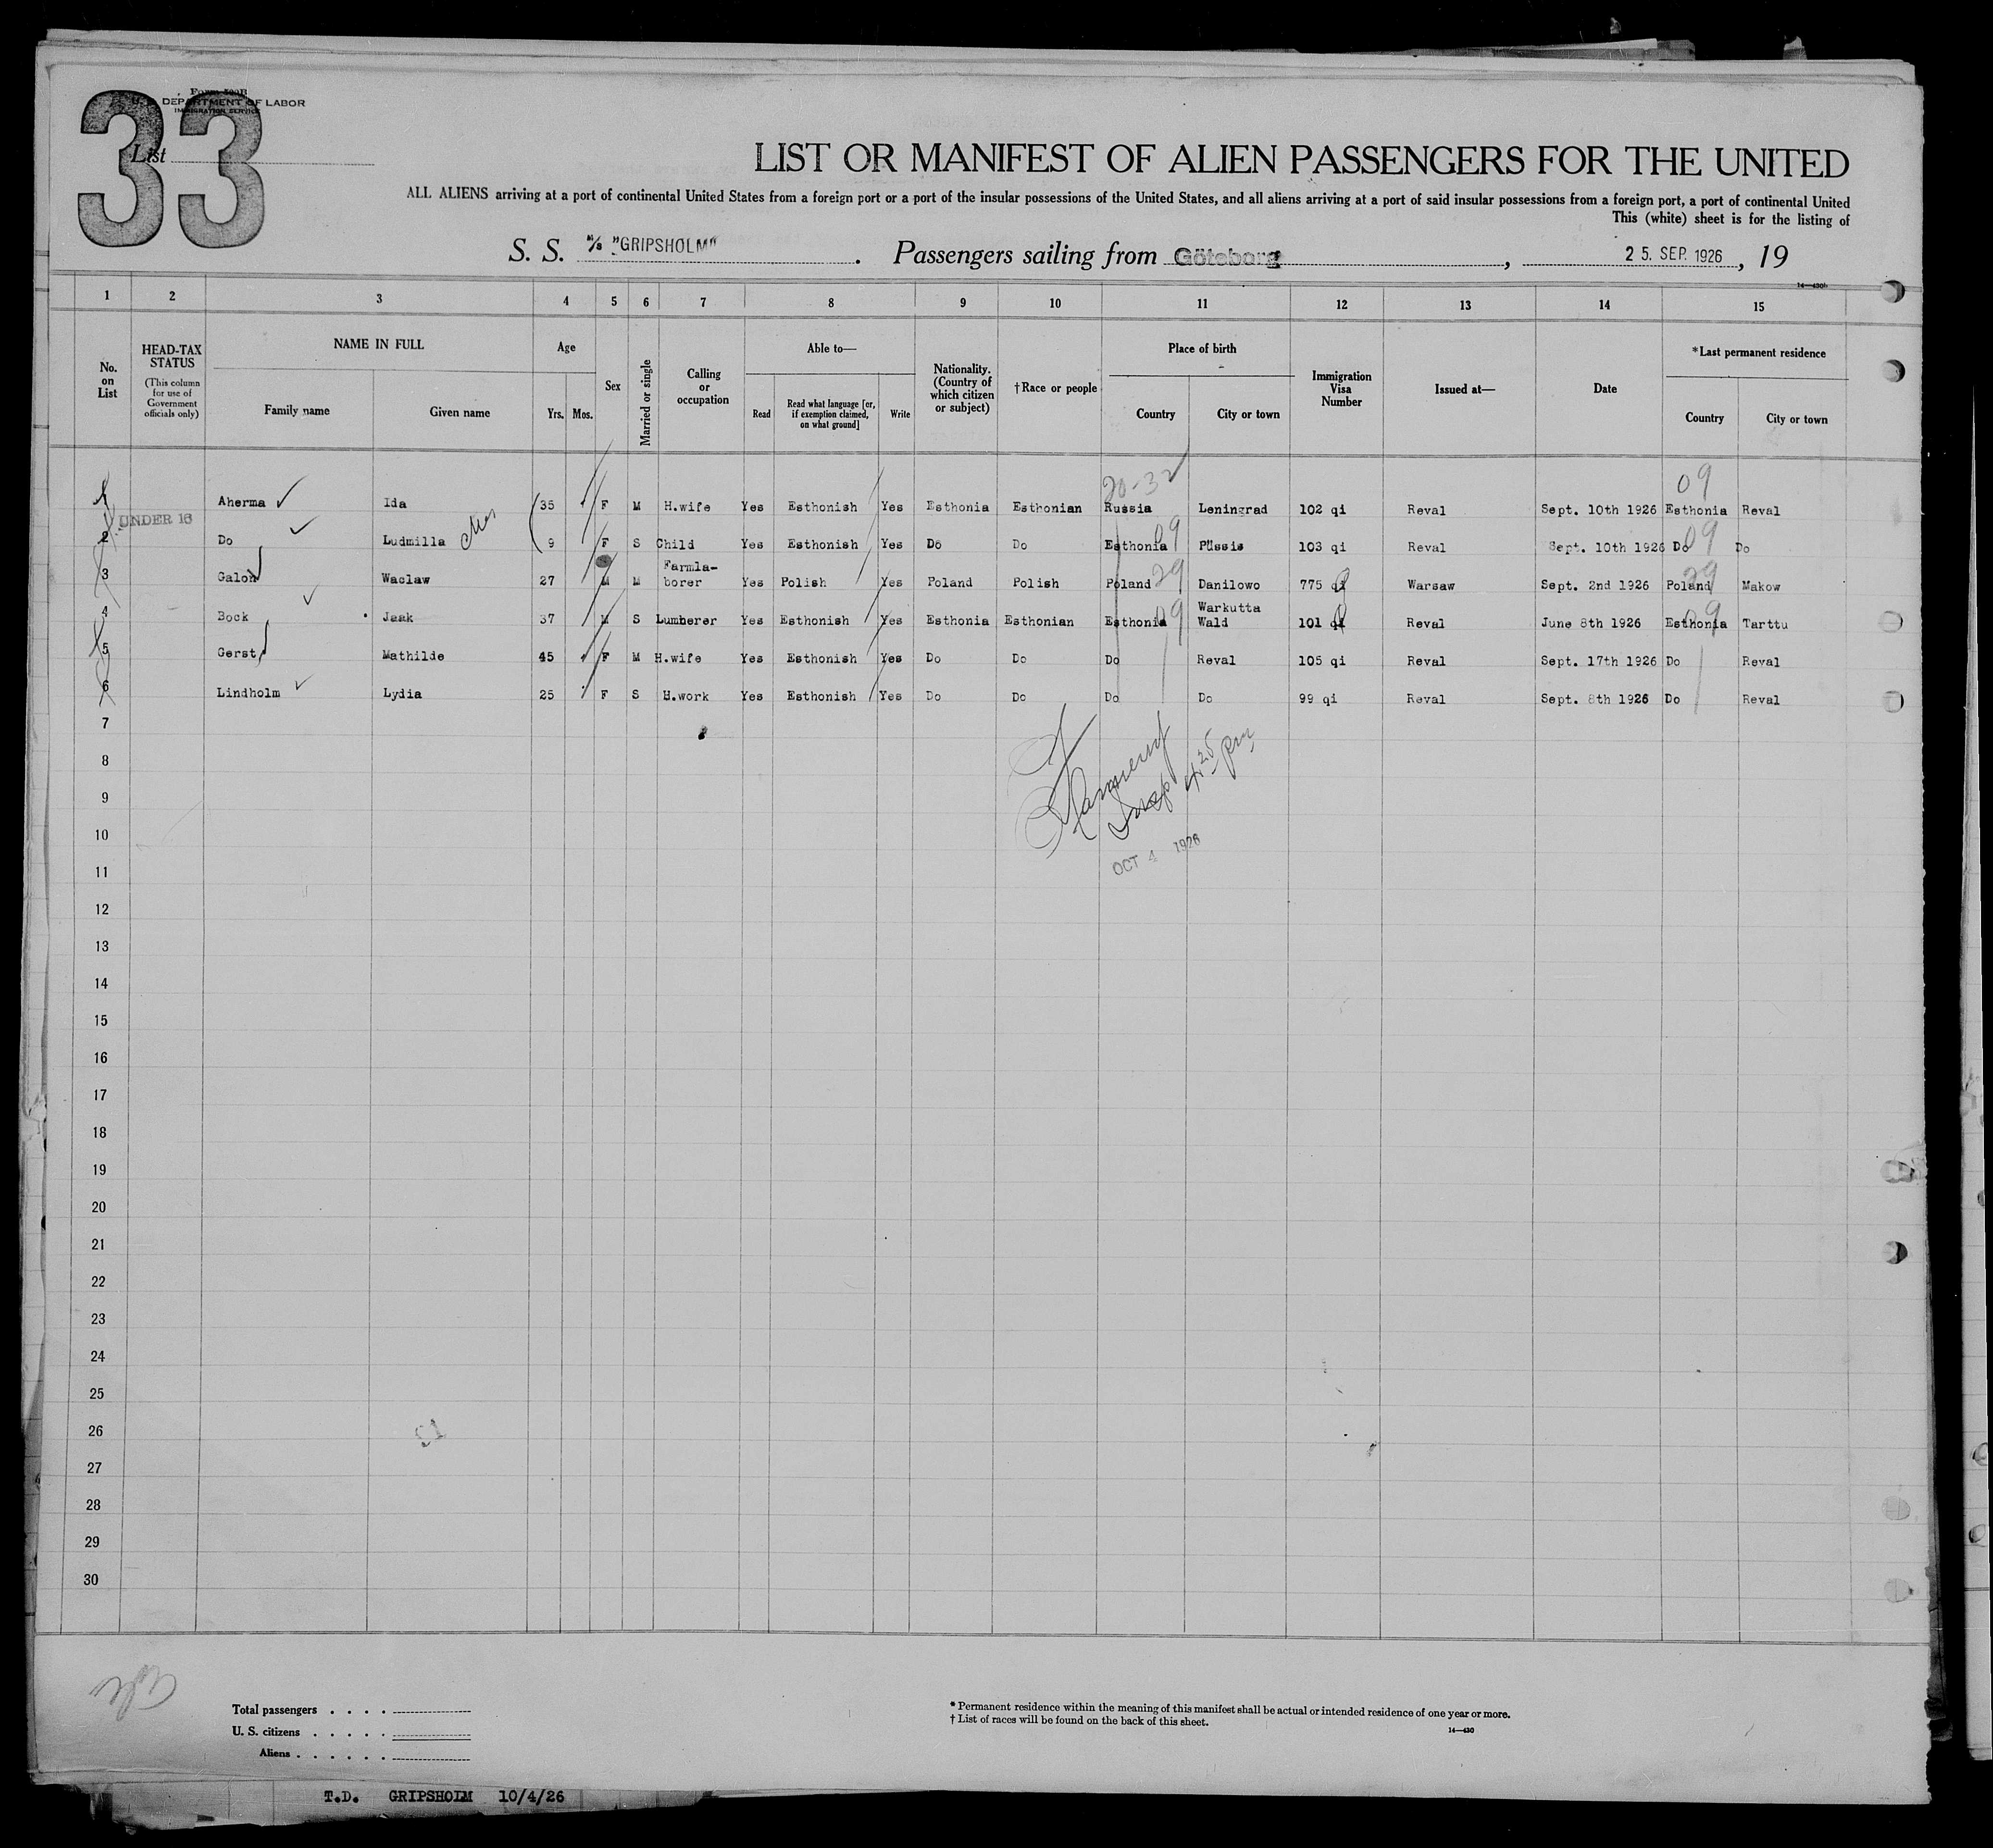 33
Form 500B
U. S. DEPARTMENT OF LABOR
IMMIGRATION SERVICE
List
LIST OR MANIFEST OF ALIEN PASSENGERS FOR THE UNITED
ALL ALIENS arriving at a port of continental United States from a foreign port or a port of the insular possessions of the United States, and all aliens arriving at a port of said insular possessions from a foreign port, a port of continental United
This (white) sheet is for the listing of
S. S. M/S "GRIPSHOLM". Passengers sailing from Göteborg, 25. SEP. 1926, 19
14—430b
1 2 3 4 5 6 7 8 9 10 11 12 13 14 15
No. on List
HEAD-TAX STATUS (This column for use of Government officials only)
NAME IN FULL Family name Given name
Age Yrs. Mos.
Sex
Married or single
Calling or occupation
Able to— Read Read what language [or, if exemption claimed, on what ground] Write
Nationality. (Country of which citizen or subject)
†Race or people
Place of birth Country City or town
Immigration Visa Number
Issued at—
Date
*Last permanent residence Country City or town
20-32 09
1 Aherma Ida 35 F M H.wife Yes Esthonish Yes Esthonia Esthonian Russia Leningrad 102 qi Reval Sept. 10th 1926 Esthonia Reval
UNDER 16
2 Do Ludmilla 9 F S Child Yes Esthonish Yes Do Do Esthonia 09 Püssis 103 qi Reval Sept. 10th 1926 Do 09 Do
3 Galon Waclaw 27 M M Farmla-borer Yes Polish Yes Poland Polish Poland 29 Danilowo 775 qi Warsaw Sept. 2nd 1926 Poland 29 Makow
4 Bock Jaak 37 M S Lumberer Yes Esthonish Yes Esthonia Esthonian Esthonia 09 Warkutta Wald 101 qi Reval June 8th 1926 Esthonia 09 Tarttu
5 Gerst Mathilde 45 F M H.wife Yes Esthonish Yes Do Do Do Reval 105 qi Reval Sept. 17th 1926 Do Reval
6 Lindholm Lydia 25 F S H.work Yes Esthonish Yes Do Do Do Do 99 qi Reval Sept. 8th 1926 Do Reval
7
Insp 4.25 pm
8
9
10
OCT 4 1926
11
12
13
14
15
16
17
18
19
20
21
22
23
24
25
26
27
28
29
30
Total passengers . . . .
U. S. citizens . . . . .
Aliens . . . . . .
* Permanent residence within the meaning of this manifest shall be actual or intended residence of one year or more.
† List of races will be found on the back of this sheet.
14—430
T.D. GRIPSHOLM 10/4/26